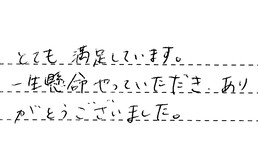 とても 満足しています。
一生懸命やっていただき、あり
がとうございました。